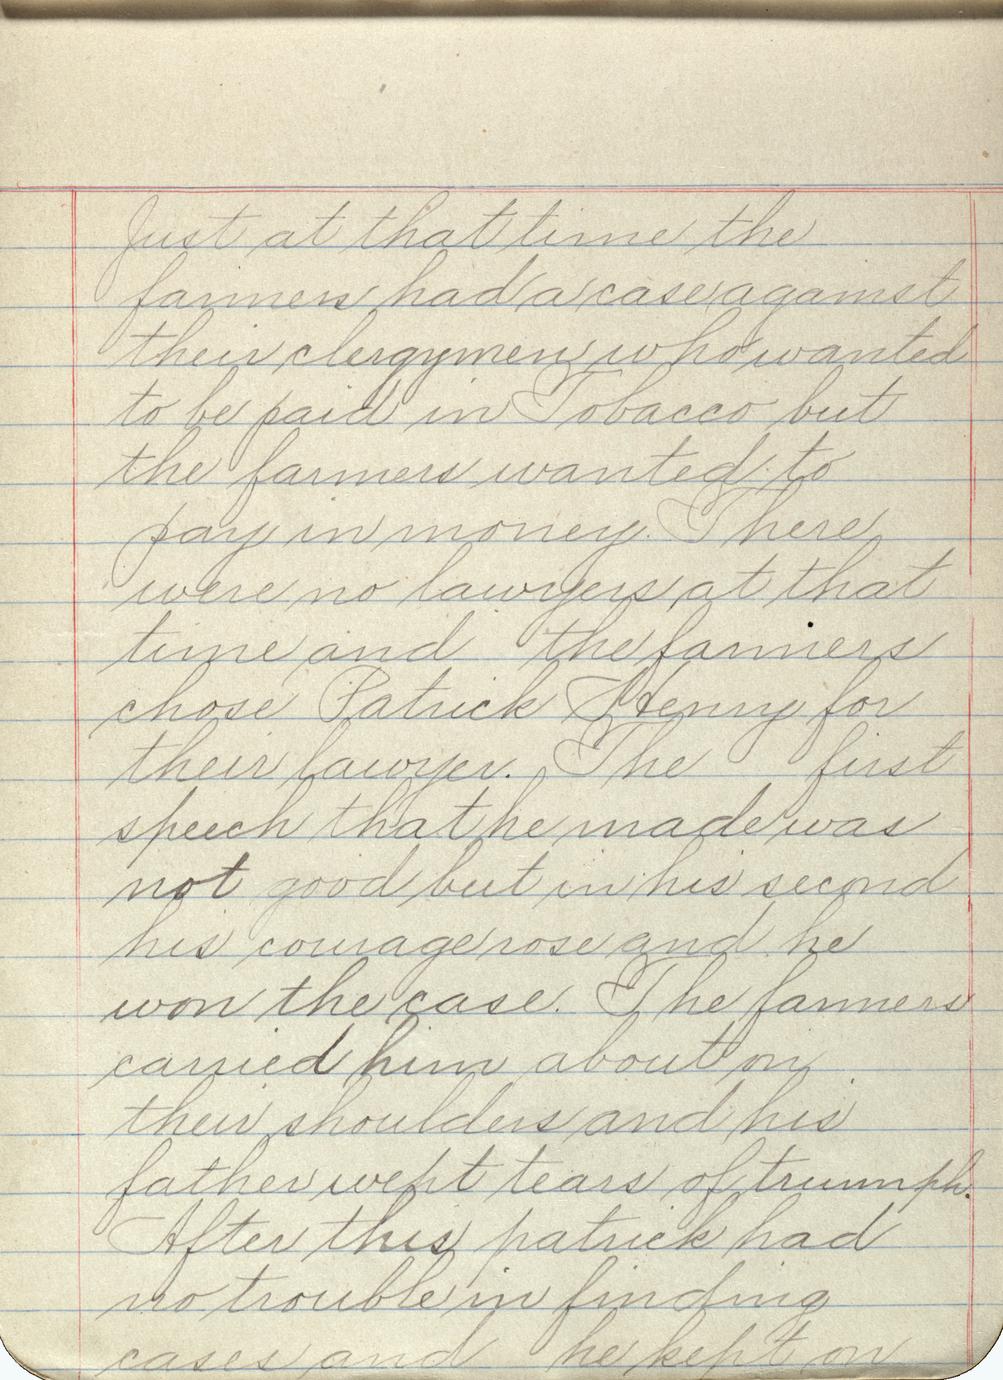 Just at that time the
farmers had a case against
their clergymen who wanted
to be paid in Tobacco but
the farmers wanted to
pay in money. There
were no lawyers at that
time and the farmers
chose Patrick Henry for
their lawyer. The first
speech that he made was
not good but in his second
his courage rose and he
won the case. The farmers
carried him about on
their shoulders and his
father wept tears of trumph.
After this patrick had
no trouble in finding
cases and he kept on